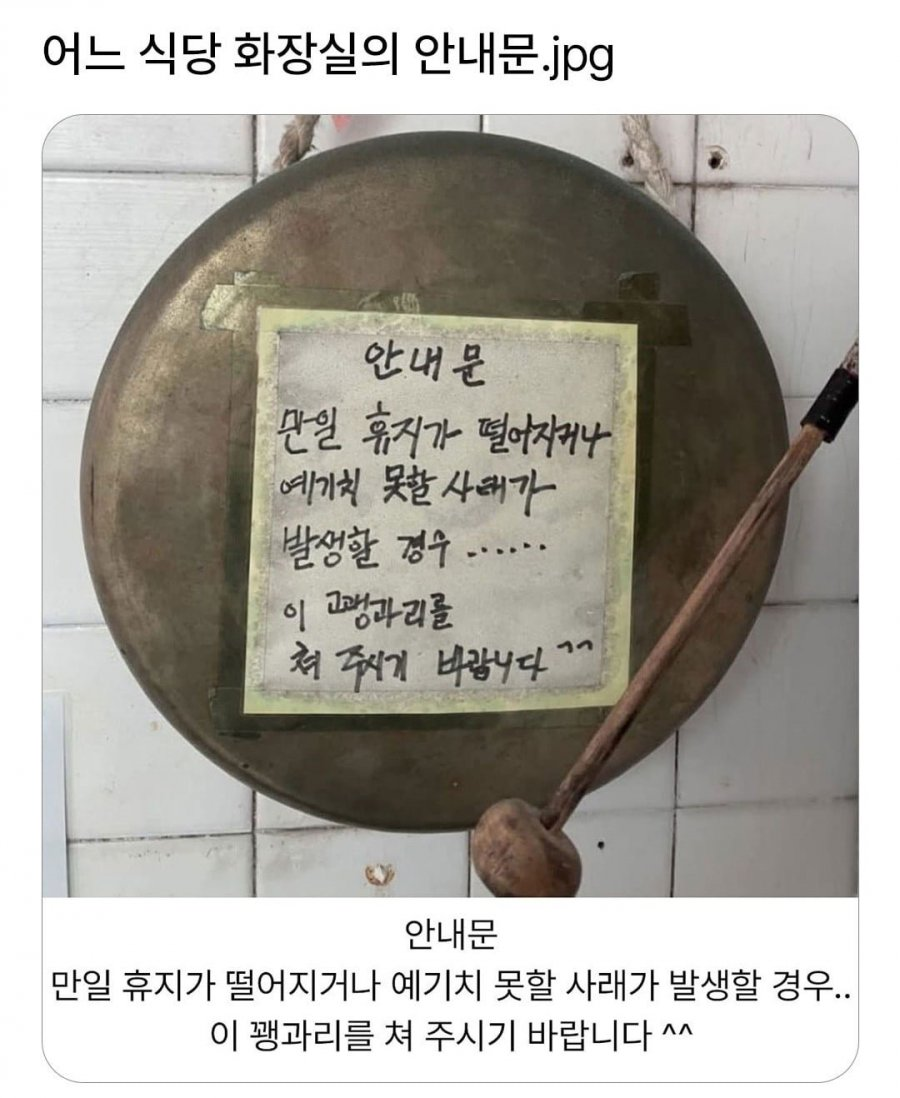 어느 식당 화장실의 안내문.jpg
안내문
만일 휴지가 떨어지거나
예기치 못할 사태가
발생할 경우 ......
이 꽹과리를
쳐 주시기 바랍니다 ^^
안내문
만일 휴지가 떨어지거나 예기치 못할 사래가 발생할 경우..
이 꽹과리를 쳐 주시기 바랍니다 ^^